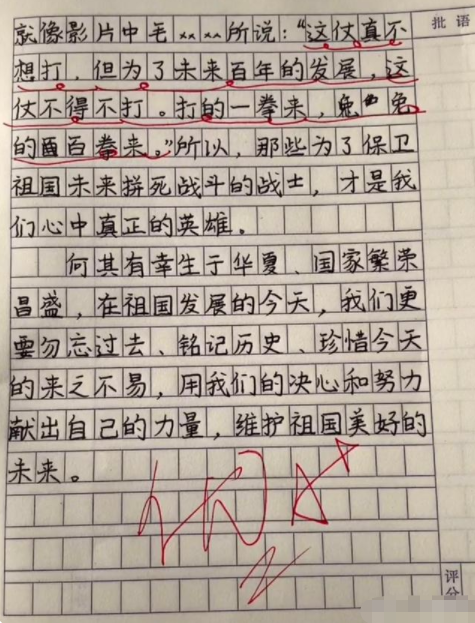 批语
就像影片中毛xx xx所说："这仗真不
想打，但为了未来百年的发展，这
仗不得不打。打的一拳来，免
的百拳来。"所以，那些为了保卫
祖国未来拼死战斗的战士，才是我
们心中真正的英雄。
何其有幸生于华夏、国家繁荣
昌盛，在祖国发展的今天，我们更
要勿忘过去、铭记历史、珍惜今天
的来之不易，用我们的决心和努力
献出自己的力量，维护祖国美好的
未来。
评分